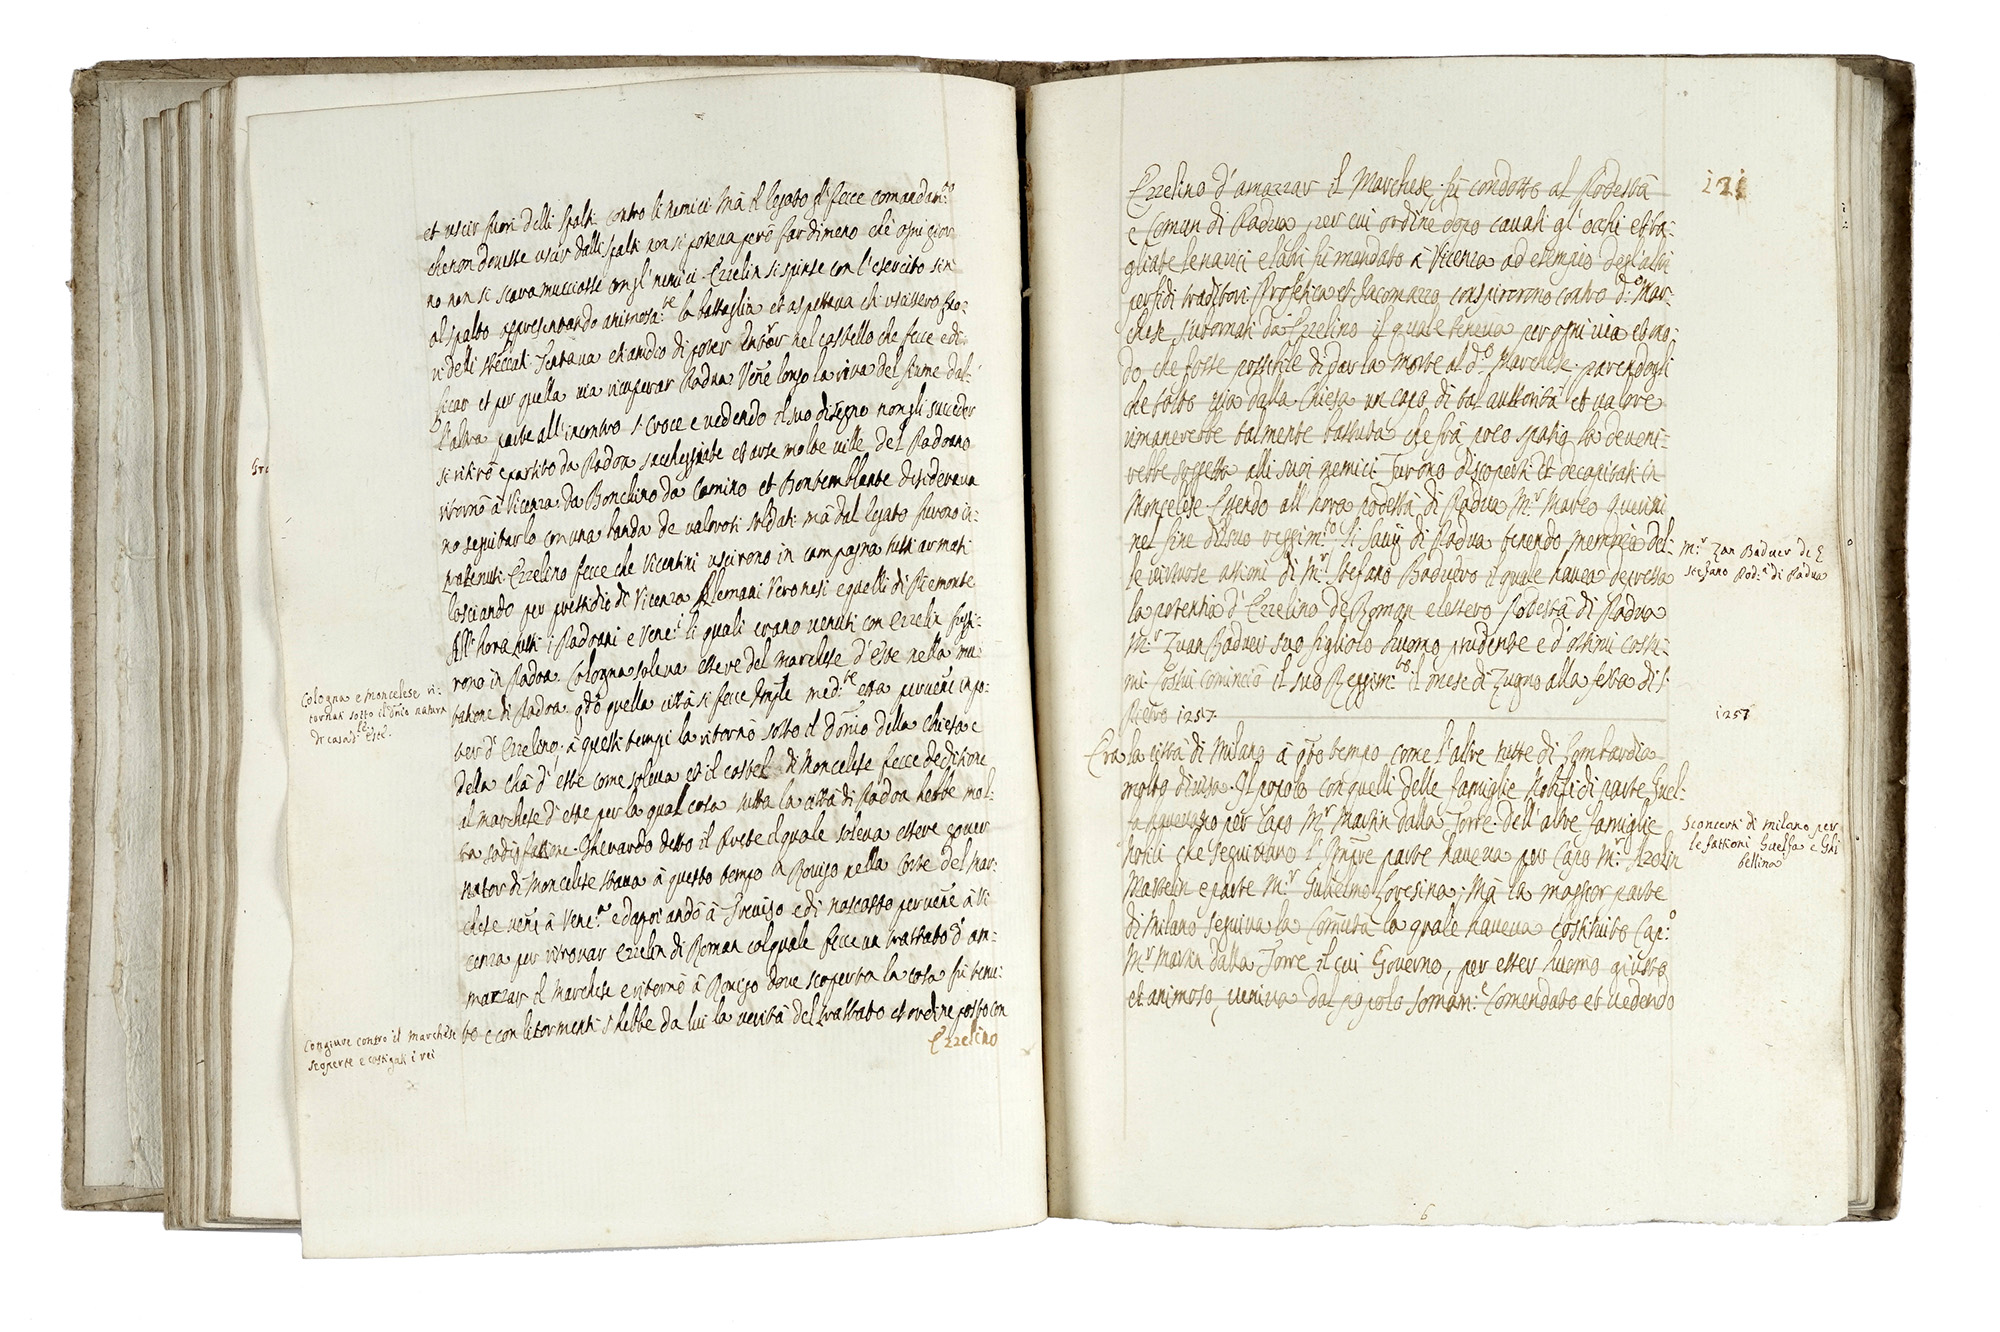 et uscir fuori delli spalti contro li nemici. Mà il legato gli fecce comandam.to
che non dovesse uscir dalli spalti non si poteva però far dimeno che ogni gior
no non si scaramucciasse con gl' nemici. Ezzelin si spinse con l'esercito sin
al spalto appresentando animosa.te la battaglia et aspettava chi uscissero fuo-
ri delli steccati. Tentava etiandio di poter entrar nel castello che fece edi-
ficar et per quella via ricuperar Padua. Venne longo la riva del fiume dal-
l'altra parte all'incontro S. Croce e vedendo il suo disegno non gli succeder
si ritirò e partito da Padoa sacchegiate et arse molte ville del Padoano
ritornò à Vicenza da Boncelino da Camino et Bontemblante desiderava
no seguitarlo con una banda de valorosi soldati mà dal legato furono in-
trattenuti. Ezzelino fecce che Vicentini uscirono in campagna tutti armati
lasciando per pressidio di Vicenza Alemani Veronesi e quelli di Piemonte
All'hora tutti i Padoani e Vene.i li quali erano venuti con Ezzelin fuggi-
rono in Padoa. Cologna soleva essere del Marchese d'Este nella mu
tatione di Padoa qdo quella città si fecce Imple med.te essa pervene in po-
ter d'Ezzelino; à questi tempi la ritornò sotto il Dnio della Chiesa e
della Chà d'Este come soleva et il castel di Moncelese fecce deditione
al Marchese d'Este per la qual cosa tutta la città di Padoa hebbe mol-
ta sodisfatione. Gherardo detto il Prete il quale soleva essere gover
nator di Moncelese stava à questo tempo a Rovigo nella Corte del Mar-
chese venne à Vene.a e dapoi andò à Treviso e di nascosto pervene à Vi
cenza per ritrovar Ezzelin di Roman col quale fecce un trattato d'am-
mazzar il Marchese e ritornò à Rovigo dove scoperta la cosa fù tenu-
to e con li tormenti s'hebbe da lui la verità del trattato et ordine posto con
Ezzelino
Cologna e Moncelese ri-
tornati sotto il Dnio natura
le
di casa d' Este.
Congiure contro il Marchese
scoperte e castigati i rei
121
Ezzelino d'amazzar il Marchese fù condotto al Podestà
e Comun di Padua per cui ordine dopo cavati gl'occhi et ta-
gliate le narici e labri fù mandato à Vicenza ad esempio degl'altri
perfidi traditori. Profetica et Jacomazzo conspirorono contro d.o Mar-
chese subornati da Ezzelino il quale teneva per ogni via et mo-
do che fosse possibile di dar la morte al d.o Marchese. parendogli
che tolto via dalla Chiesa un capo di tal auttorità et valore
rimanerebbe talmente battuta che frà poco spatio la deveni-
rebbe soggetta alli suoi nemici. Furono discoperti et decapitati in
Moncelese. Essendo all'hora podestà di Padua M.r Marco Querini
nel fine del suo reggim.to li Savij di Padua tenendo memoria del-
le virtuose attioni di M.r Stefano Baduero il quale havea depressa
la potentia d'Ezzelino de Roman elessero Podestà di Padua
M.r Zuan Baduer suo figliolo huomo prudente e d'ottimi costu-
mi. Costui cominciò il suo Reggim.to il mese di Zugno alla festa di S.
Pietro 1257.
Era la città di Milano à qto tempo come l'altre tutte di Lombardia
molto divisa. Il popolo con quelli delle famiglie Nobili di parte Guel-
fa havevano per Capo M.r Martin dalla Torre. dell'altre famiglie
Nobili che seguitano l'Impre parte haveva per Capo M.r Azolin
Marcelin e parte M.r Gulielmo Soresina; Mà la maggior parte
di Milano seguiva la Comuta la quale haveva costituito Cap.o
M.r Martin dalla Torre il cui Governo, per esser huomo giusto
et animoso, veniva dal popolo somam.e comendato et vedendo
M.r Zan Baduer de S
Stefano Pod.a di Padua
1257
Sconcerti di Milano per
le fattioni Guelfa e Ghi
bellina
6